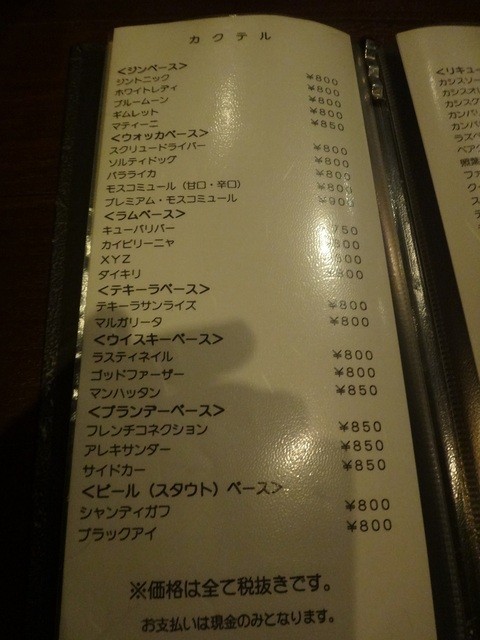 カクテル
<ジンベース>
ジントニック ¥800
ホワイトレディ ¥800
ブルームーン ¥800
ギムレット ¥800
マティーニ ¥850
<ウォッカベース>
スクリュードライバー ¥800
ソルティドッグ ¥800
バラライカ ¥800
モスコミュール（甘口・辛口） ¥800
プレミアム・モスコミュール ¥900
<ラムベース>
キューバリバー ¥750
カイピリーニャ ¥800
XYZ ¥800
ダイキリ ¥800
<テキーラベース>
テキーラサンライズ ¥800
マルガリータ ¥800
<ウイスキーベース>
ラスティネイル ¥800
ゴッドファーザー ¥800
マンハッタン ¥850
<ブランデーベース>
フレンチコネクション ¥850
アレキサンダー ¥850
サイドカー ¥850
<ビール（スタウト）ベース>
シャンディガフ ¥800
ブラックアイ ¥800
※価格は全て税抜きです。
お支払いは現金のみとなります。
<リキュー
カシスソー
カシスオレ
カシスグ
カンパリ
カンパ
ラズベ
ペア